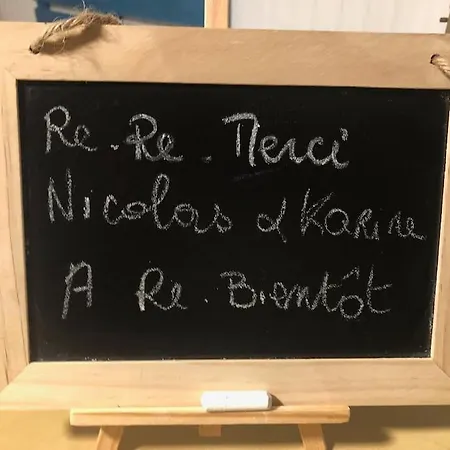 Re. Re. Merci
Nicolas & Karine
A Re. Bientôt